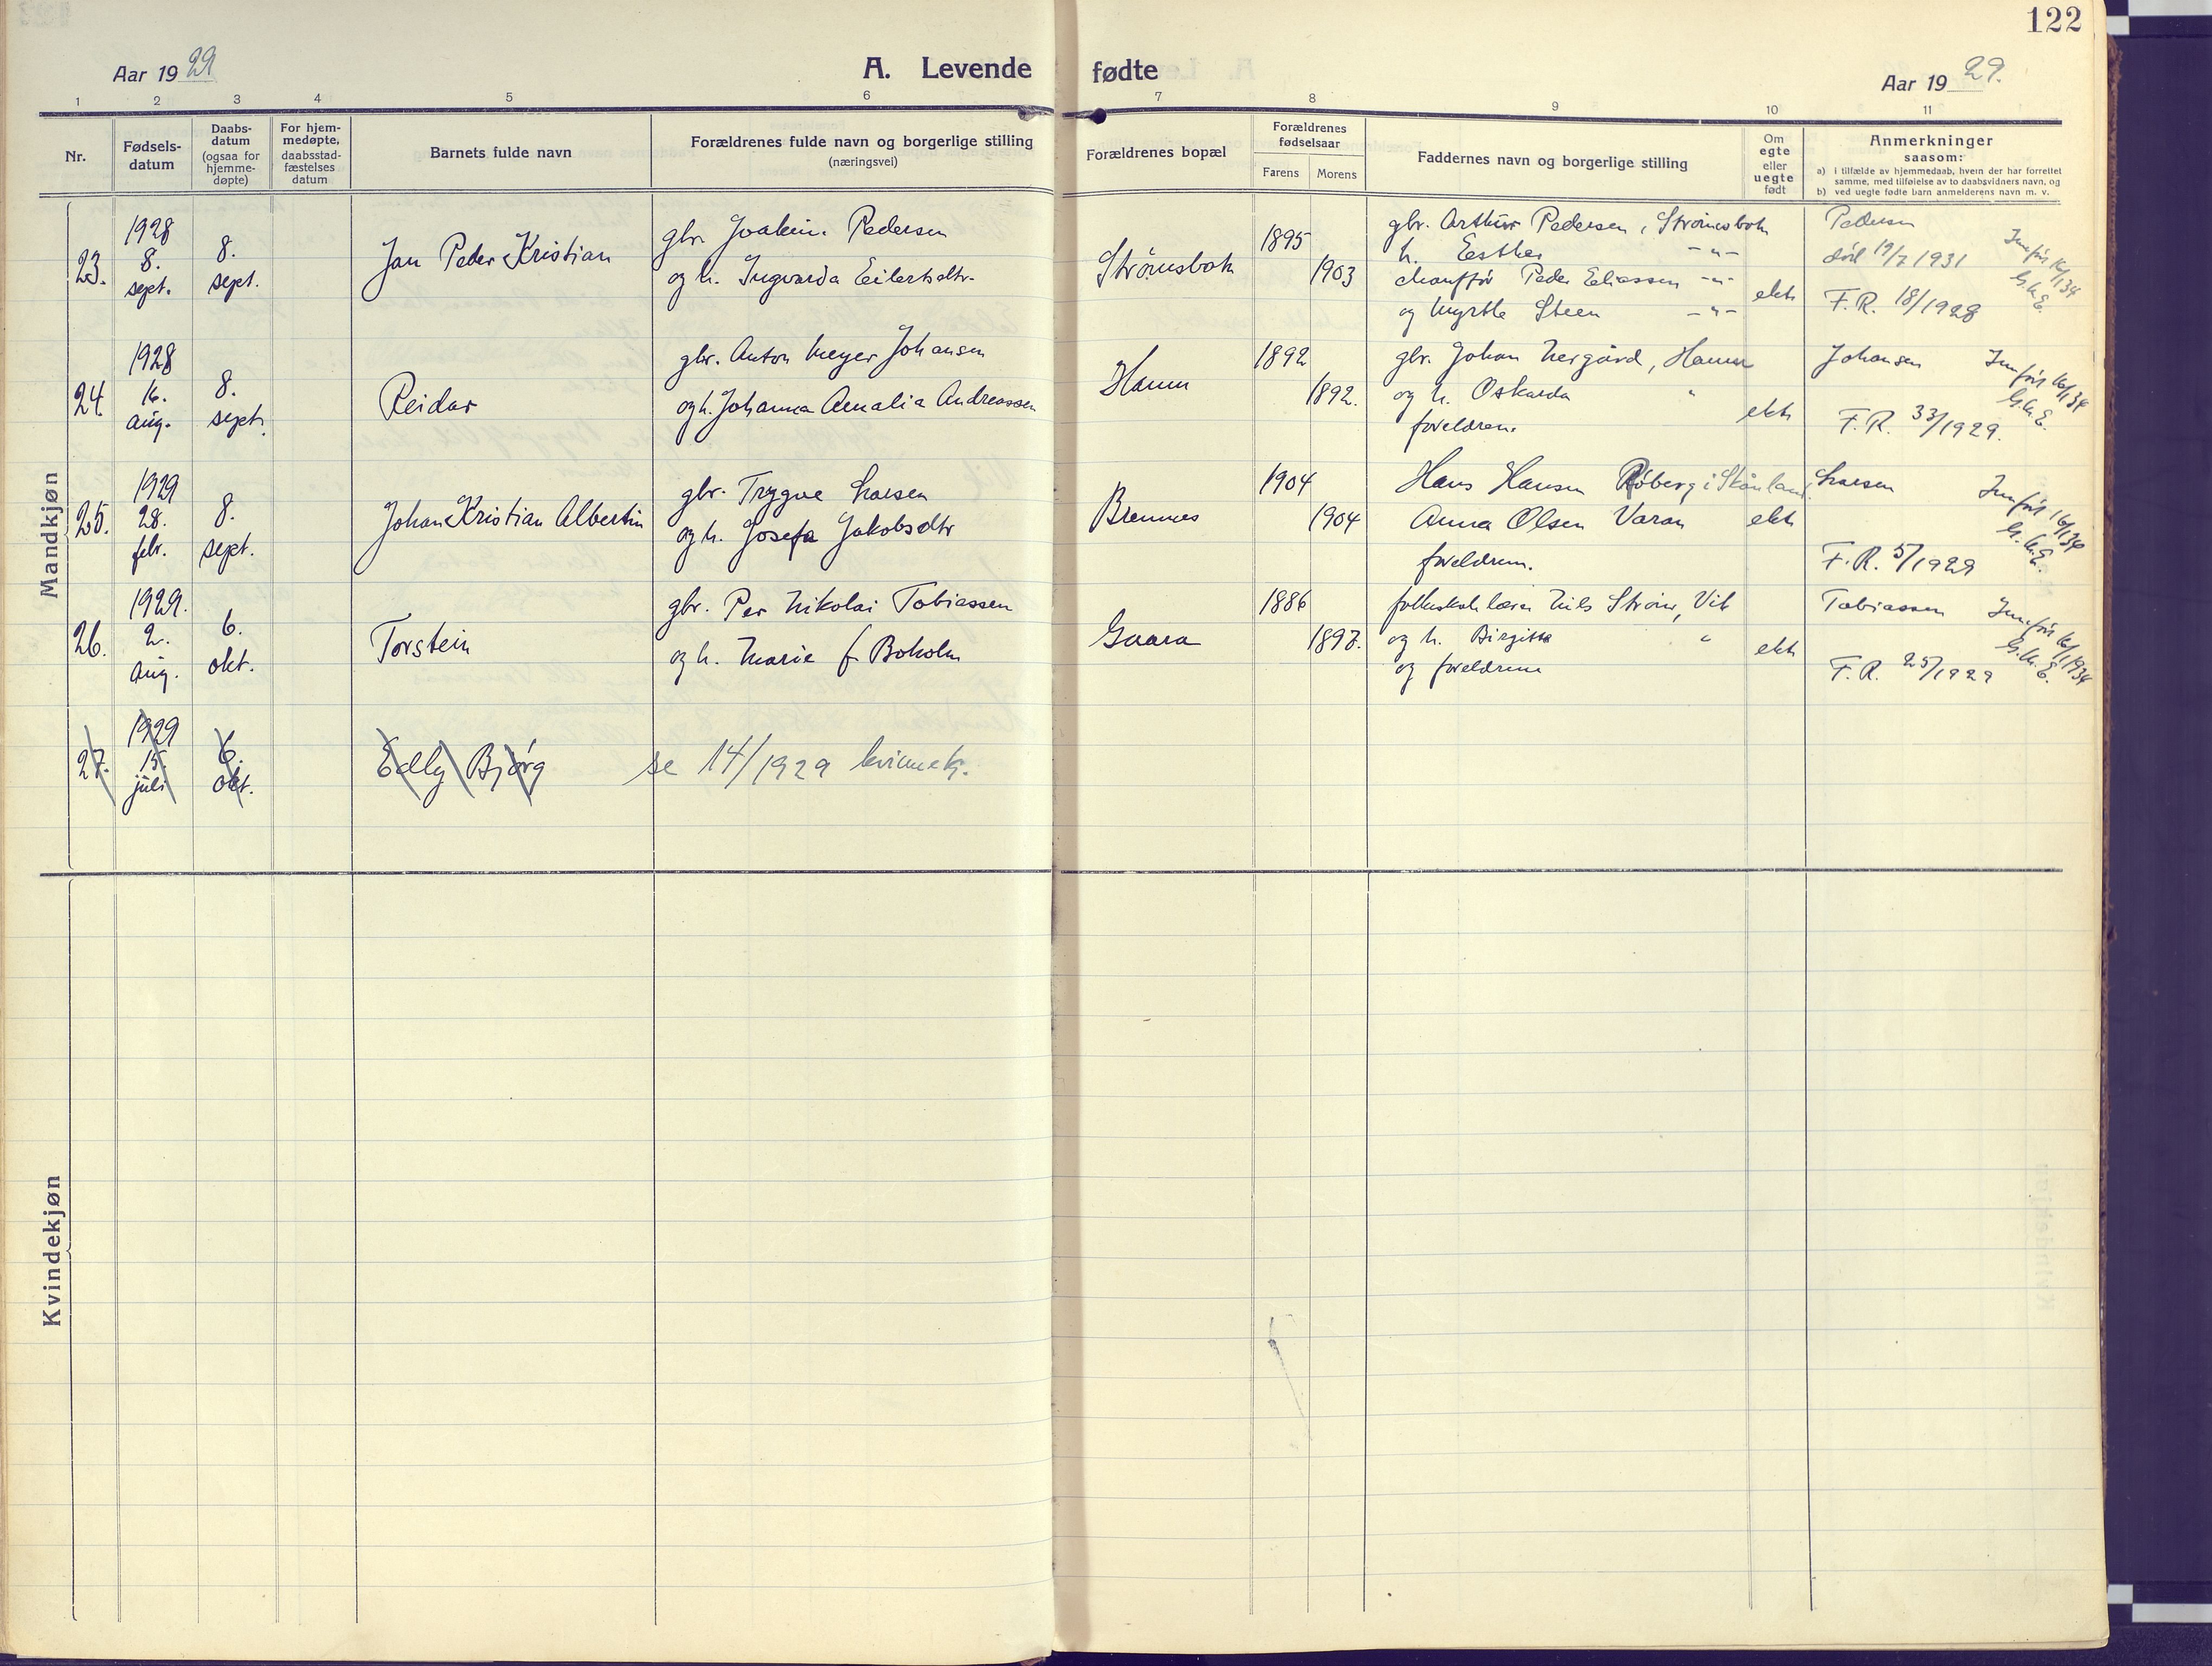 122
Aar 1929
A. Levende fødte
Aar 1929.
1 2 3 4 5 6 7 8 9 10 11
Nr.
Fødsels-
datum
Daabs-
datum
(ogsaa for
hjemme-
døpte)
For hjem-
medøpte,
daabsstad-
fæstelses
datum
Barnets fulde navn
Forældrenes fulde navn og borgerlige stilling
(næringsvei)
Forældrenes bopæl
Forældrenes
fødselsaar
Farens Morens
Faddernes navn og borgerlige stilling
Om
egte
eller
uegte
født
Anmerkninger
saasom:
a) i tilfælde av hjemmedaab, hvem der har forrettet
samme, med tilføielse av to daabsvidners navn, og
b) ved uegte fødte barn anmelderens navn m. v.
Mandkjøn
23.
1928
8.
sept.
8.
sept.
Jan Peder Kristian
gbr. Joakim Pedersen
og h. Ingvarda Eilertsdtr.
Strømsbotn
1895
1903
gbr. Arthur Pedersen, Strømsbotn
h. Esther -"-
chauffør Peder Eliassen -"-
og Myrtle Steen -"-
ekte
Pedersen
død 19/7 1931
F.R. 18/1928
Innført 16/1 34
G.M.E.
24.
1928
16.
aug.
8.
sept.
Reidar
gbr. Anton Meyer Johansen
og h. Johanna Amalia Andreassen
Hamn
1892
1892.
gbr. Johan Nergård, Hamn
og h. Oskarda "
foreldrene
ekte
Johansen
F.R. 33/1929.
Innført 16/1 34
G.M.E.
25.
1929
28.
febr.
8.
sept.
Johan Kristian Albertin
gbr. Trygve Larsen
og h. Josefa Jakobsdtr
Brennes
1904
1904
Hans Hansen Røberg i Skånland
Anna Olsen Varån
foreldrene.
ekte
Larsen
F.R. 5/1929
Innført 16/1 34
G.M.E.
26.
1929.
2.
aug.
6.
okt.
Torstein
gbr. Per Nikolai Tobiassen
og h. Marie f Boholm
Gaara
1886
1897.
folkeskolelærer Nils Strøm, Vik
og h. Birgitte "
og foreldrene
ekte
Tobiassen
F.R. 25/1929
Innført 16/1 1934
G.M.E.
27.
1929
15.
juli
6.
okt.
Edly Bjørg
se 14/1929 kvinnekj.
Kvindekjøn